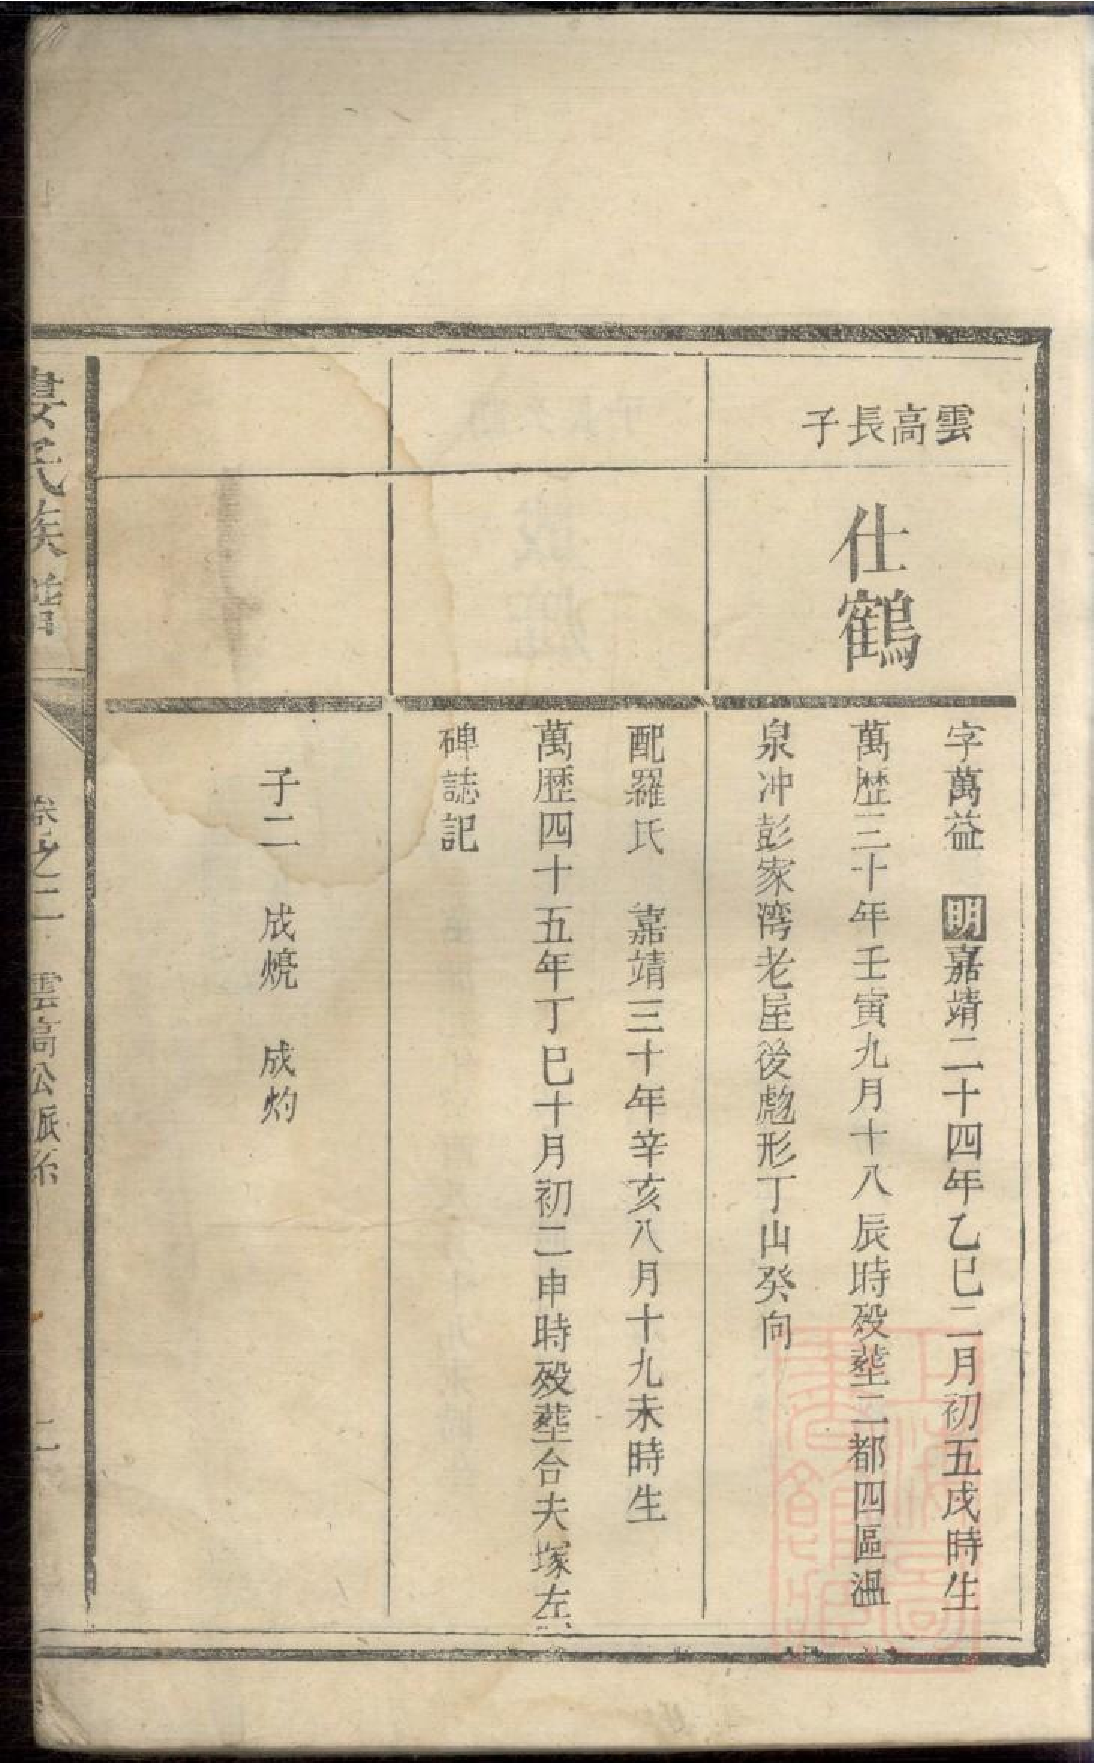 雲高長子
仕鶴
字萬益　明嘉靖二十四年乙巳二月初五戌時生
萬歴三十年壬寅九月十八辰時殁塟二都四區溫
泉冲彭家湾老屋後虎形丁山癸向
配羅氏　嘉靖三十年辛亥八月十九未時生
萬歴四十五年丁巳十月初二申時殁塟合夫塚左
碑誌記
子二　成燒　成灼
氏族譜
卷之二　雲高公派系
二